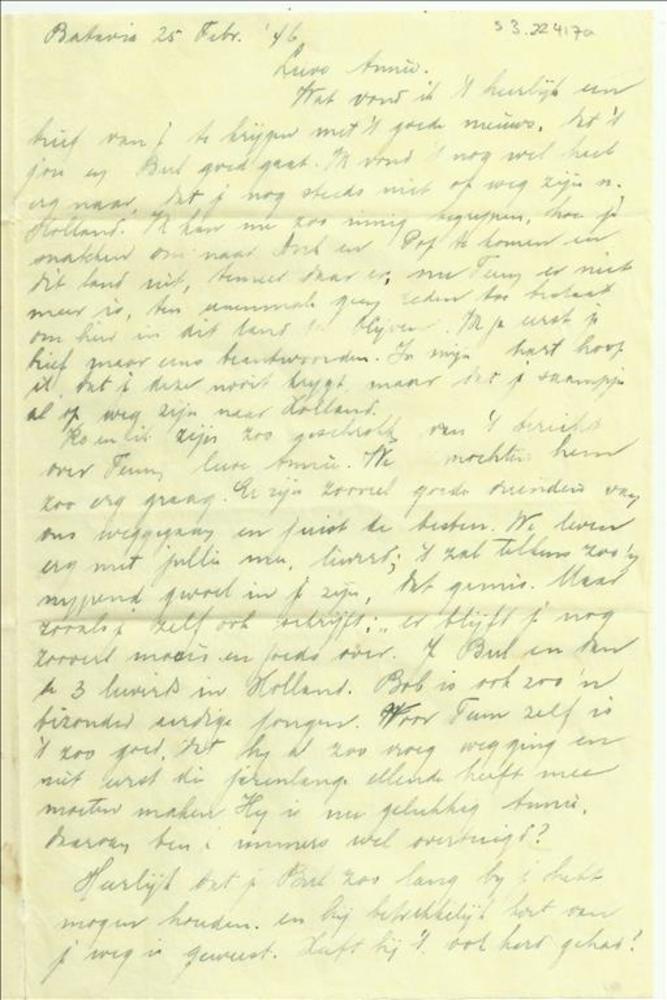 Batavia 25 Febr. '46
S3.224170
Lieve Annie.
Wat vond ik 't heerlijk een
brief van j te krijgen met 't goede nieuws, dat 't
jou en Bul goed gaat. Ik vond 't nog wel heel
erg naar, dat j nog steeds niet op weg zijn n.
Holland. Ik kan me zoo innig begrijpen, hoe je
snakken om naar en Pop te komen en
dit land uit, temeer daar er, nu Teun er niet
meer is, geen reden toe bestaat
om hier in dit land te blijven. Ik ga eerst je
brief maar eens beantwoorden. In mijn hart hoop
ik, dat j deze nooit krijgt, maar dat j
al op weg zijn naar Holland.
Ko en ik zijn zoo geschrokken van 't bericht
over Teun, lieve Annie. We mochten hem
zoo erg graag. Er zijn zooveel goede vrienden van
ons weggegaan en juist de besten. We leven
erg met jullie mee, lieverd; 't zal telkens zoo'n
nypend gevoel in j zijn, dat gemis. Maar
zooals j zelf ook schrijft: „er blijft j nog
zooveel moois en goeds over. Bul en dan
de 3 lieverds in Holland. Bob is ook zoo'n
bizonder aardige jongen. Voor Teun zelf is
't zoo goed, dat hy al zoo vroeg wegging en
niet eerst die jarenlange ellende heeft mee
moeten maken. Hy is nu gelukkig Annie,
daarvan ben i immers wel overtuigd?
Heerlijk dat je Bul zoo lang by j hebt
mogen houden. en hij betrekkelijk kort van
j weg is geweest. Heeft hij 't ook hard gehad?